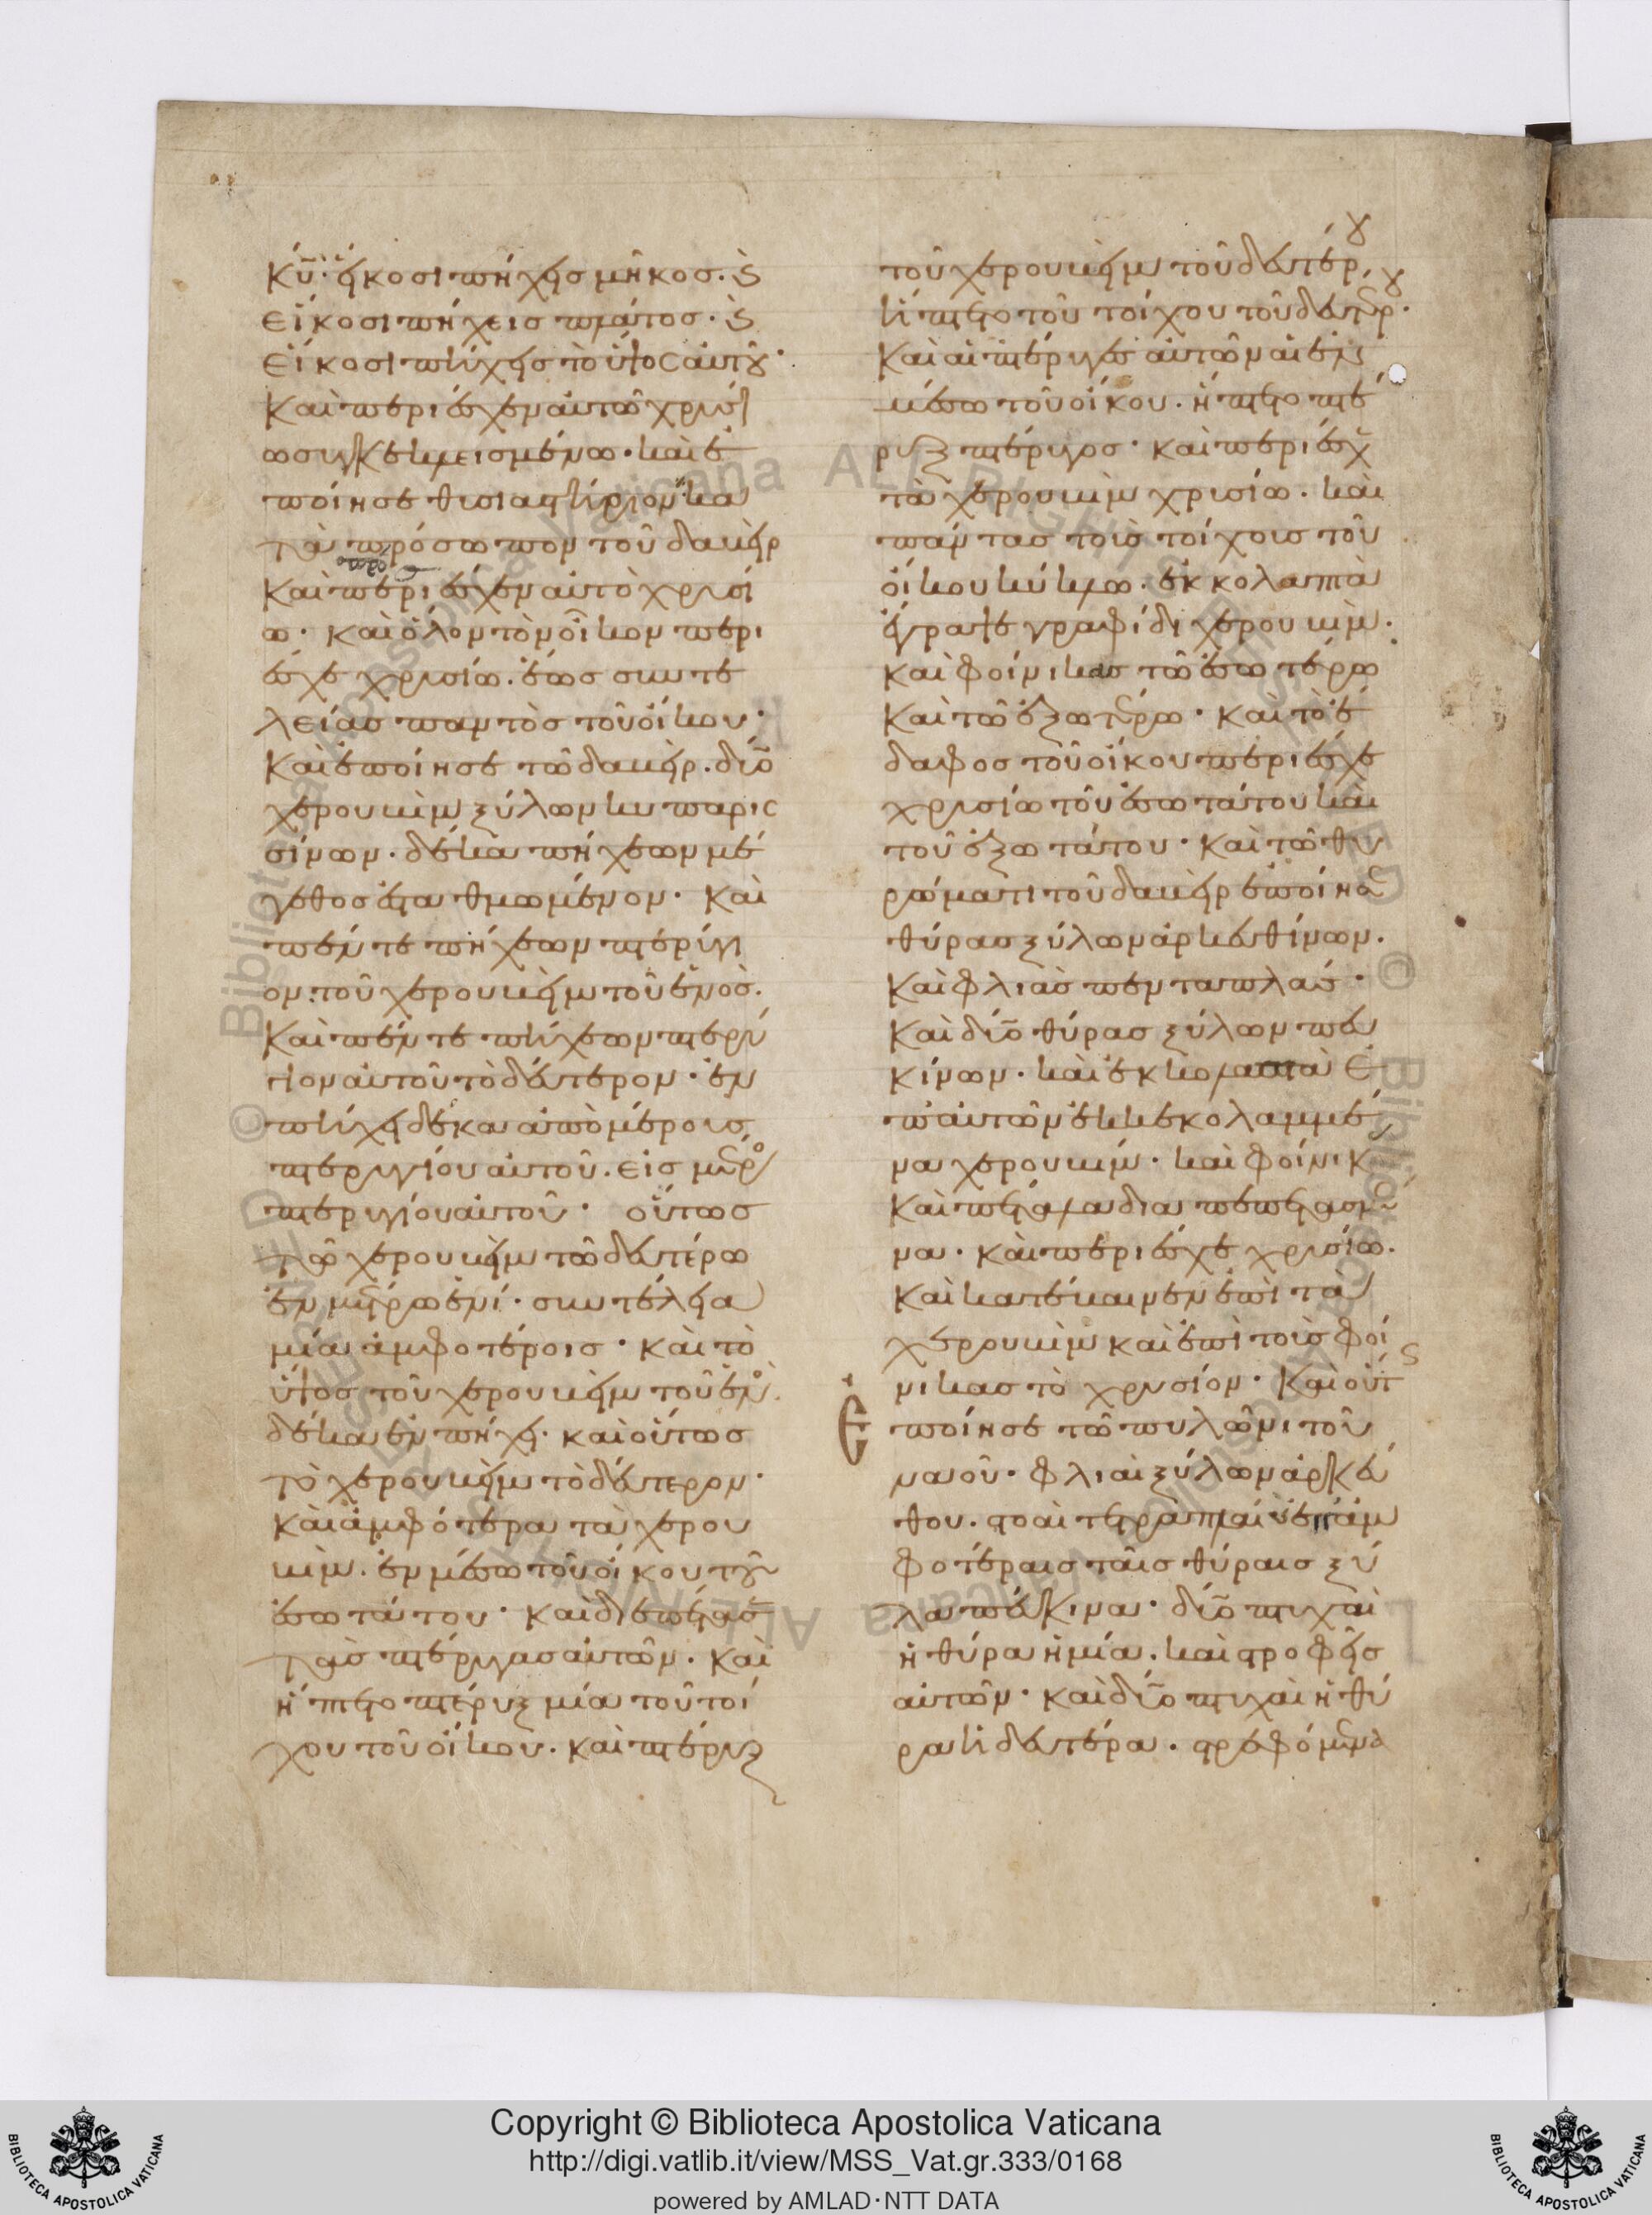 κῡ· εἴκοσι πήχεις μῆκος. ϗ
εἴκοσι πήχεις πλάτος· ϗ
εἴκοσι πήχεις τὸ ὕψος αὐτοῦ·
καὶ περιέσχεν αὐτῶ χρυσί
ω συγκεκλεισμένω· καὶ ἐ
ποίησε θυσιαστήριον κα
τὰ πρόσωπον τοῦ δαβεὶρ
καὶ περιέσχεν αὐτὸ χρυσί
ω· καὶ ὅλον τὸν οἶκον περι
έσχε χρυσίω. ἕως συντε
λείας παντὸς τοῦ οἴκου·
καὶ ἐποίησε τῶ δαβεὶρ. δύο
χερουβὶμ ξύλων κυπαρισ
σίνων. δέκα πήχεων μέ
γεθος ἐσταθμωμένον· καὶ
πέντε πήχεων πτερύγι
ον τοῦ χερουβεὶμ τοῦ ἑνὸς.
καὶ πέντε πήχεων πτερύ
γιον αὐτοῦ τὸ δεύτερον· ἐν
πήχει δέκα ἀπὸ μέρους
πτερυγίου αὐτοῦ. εἰς μέρο
πτερυγίου αὐτοῦ· οὕτως
τῶ χερουβεὶμ τῶ δευτέρω
ἐν μέτρω ἑνί· συντέλεια
μία ἀμφοτέροις· καὶ τὸ
ὕψος τοῦ χερουβεὶμ τοῦ ἑνὸ
δέκα ἐν πήχει· καὶ οὕτως
τὸ χερουβεὶμ τὸ δεύτερον·
καὶ ἀμφότερα τὰ χερου
βὶμ. ἐν μέσω τοῦ οἴκου τοῦ
ἐσωτάτου· καὶ διεπέτασ
τὰς πτέρυγας αὐτῶν. καὶ
ἥπτετο πτέρυξ μία τοῦ τοί
χου τοῦ οἴκου. καὶ πτέρυξ
τοῦ χερουβεὶμ τοῦ δευτέρου
ἥπτετο τοῦ τοίχου τοῦ δευτέρου·
καὶ αἱ πτέρυγες αὐτῶν αἱ ἐν
μέσω τοῦ οἴκου. ἥπτετο πτέ
ρυξ πτέρυγος· καὶ περιέσχ
τὰ χερουβὶμ χρυσίω. καὶ
πάντας τοὺς τοίχους τοῦ
οἴκου κύκλω. ἐκκολαπτὰ
ἔγραψε γραφίδι χερουβὶμ.
καὶ φοίνικας τῶ ἐσωτέρω
καὶ τῶ ἐξωτέρω· καὶ τὸ ἔ
δαφος τοῦ οἴκου περιέσχε
χρυσίω τοῦ ἐσωτάτου καὶ
τοῦ ἐξωτάτου· καὶ τῶ θυ
ρώματι τοῦ δαβεὶρ ἐποίησ
θύρας ξύλων ἀρκευθίνων.
καὶ φλιὰς πενταπλᾶς·
καὶ δύο θύρας ξύλων πευ
κίνων. καὶ ἐκκολαπτὰ ἐ
π' αὐτῶν ἐκκεκολαμμέ
να χερουβίμ· καὶ φοίνικ
καὶ πέταλα διαπεπετασμέ
να· καὶ περιέσχε χρυσίω.
καὶ κατέβαινεν ἐπὶ τὰ
χερουβὶμ καὶ ἐπὶ τοὺς φοί
νικας τὸ χρυσίον· καὶ οὕτως
ἐποίησε τῶ πυλῶνι τοῦ
ναοῦ· φλιαὶ ξύλων ἀρκεύ
θου. στοαὶ τετραπλαῖ ϗ ἐπ' ἀμ
φοτέραις ταῖς θύραις ξύ
λα πεύκινα· δύο πτυχαὶ
ἡ θύρα ἡ μία. καὶ στροφεῖς
αὐτῶν· καὶ δύο πτυχαὶ ἡ θύ
ρα ἡ δευτέρα. στρεφόμενα
Copyright © Biblioteca Apostolica Vaticana
http://digi.vatlib.it/view/MSS_Vat.gr.333/0168
powered by AMLAD·NTT DATA
BIBLIOTECA APOSTOLICA VATICANA
BIBLIOTECA APOSTOLICA VATICANA